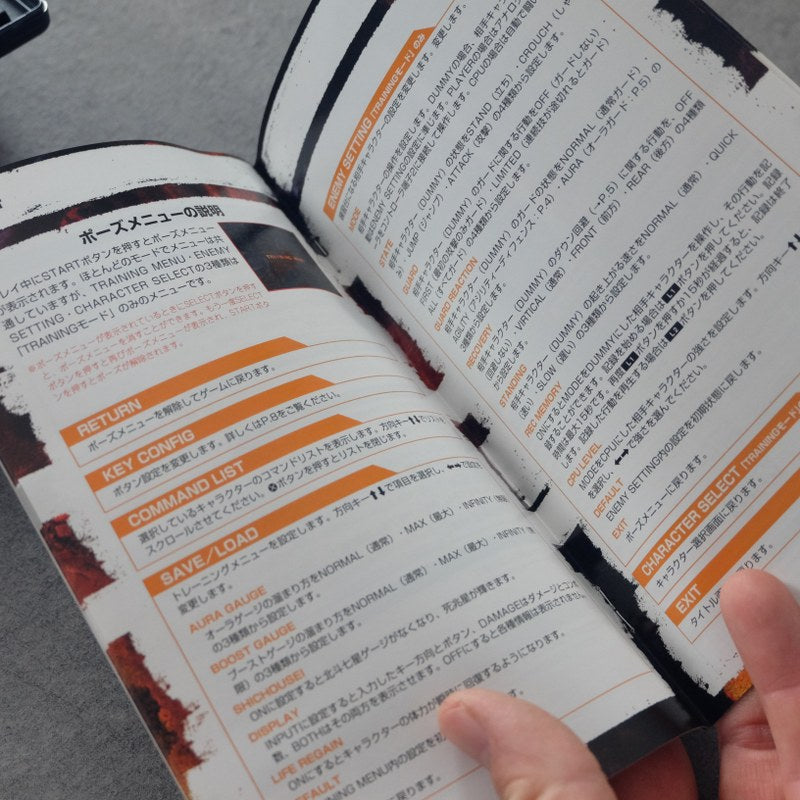 ポーズメニューの説明
レイ中にSTARTボタンを押すとポーズメニュー
が表示されます。ほとんどのモードでメニューは共
通していますが、TRAINING MENU・ENEMY
SETTING・CHARACTER SELECTの3種類は
「TRAININGモード」のみのメニューです。
※ポーズメニューが表示されているときにSELECTボタンを押す
と、ポーズメニューを消すことができます。もう一度SELECT
ボタンを押すと再びポーズメニューが表示され、STARTボタ
ンを押すとポーズが解除されます。
RETURN
ポーズメニューを解除してゲームに戻ります。
KEY CONFIG
ボタン設定を変更します。詳しくはP.8をご覧ください。
COMMAND LIST
選択しているキャラクターのコマンドリストを表示します。方向キー⬆⬇でリストを
スクロールさせてください。✖ボタンを押すとリストを閉じます。
SAVE/LOAD
トレーニングメニューを設定します。方向キー⬆⬇で項目を選択し、⬅➡で設定を
変更します。
AURA GAUGE
オーラゲージの溜まり方をNORMAL（通常）・MAX（最大）・INFINITY（無限）
の3種類から設定します。
BOOST GAUGE
ブーストゲージの溜まり方をNORMAL（通常）・MAX（最大）・INFINITY（無
限）の3種類から設定します。
SHICHOUSEI
ONに設定すると北斗七星ゲージがなくなり、死兆星が輝きます。
DISPLAY
INPUTに設定すると入力したキー方向とボタン、DAMAGEはダメージとコンボ
数、BOTHは両方を表示させます。OFFにすると各種情報は表示されません。
LIFE REGAIN
ONにするとキャラクターの体力が瞬時に回復するようになります。
DEFAULT
TRAINING MENU内の設定を初
ENEMY SETTING 「TRAININGモード」のみ
敵対になる相手キャラクターの設定を変更します。
MODE
相手キャラクターの操作を設定します。DUMMYの場合、相手キャ
STATE
相手キャラクター（DUMMY）の状態をSTAND（立ち）・CROUCH（しゃ
み）・JUMP（ジャンプ）・ATTACK（攻撃）の4種類から設定します。
GUARD
相手キャラクター（DUMMY）のガードに関する行動をOFF（ガードしない）・
FIRST（最初の攻撃のみガード）・LIMITED（連続技が途切れるとガード）・
ALL（すべてガード）の4種類から設定します。
GUARD REACTION
相手キャラクター（DUMMY）のガードの状態をNORMAL（通常ガード）・
AGILITY（アジリティーディフェンス：P.4）・AURA（オーラガード：P.5）の
3種類から設定します。
RECOVERY
相手キャラクター（DUMMY）のダウン回避（→P.5）に関する行動を、OFF
（回避しない）・VIRTICAL（通常）・FRONT（前方）・REAR（後方）の4種類
から設定します。
STANDING
相手キャラクター（DUMMY）の起き上がる速さをNORMAL（通常）・QUICK
（速い）・SLOW（遅い）の3種類から設定します。
REC MEMORY
ONにするとMODEをDUMMYにした相手キャラクターを操作し、その行動を記
録することができます。記録を始める場合はL1ボタンを押してください。記録
時間は最大15秒です。再度L1ボタンを押すか15秒が経過すると、記録は終了
します。記録した行動を再生する場合はL2ボタンを押してください。
CPU LEVEL
MODEをCPUにした相手キャラクターの強さを設定します。方向キー⬆⬇
を選択し、⬅➡で強さを選んでください。
DEFAULT
ENEMY SETTING内の設定を初期状態に戻します。
EXIT
ポーズメニューに戻ります。
CHARACTER SELECT 「TRAININGモード
キャラクター選択画面に戻ります。
EXIT
タイトル画
ります。